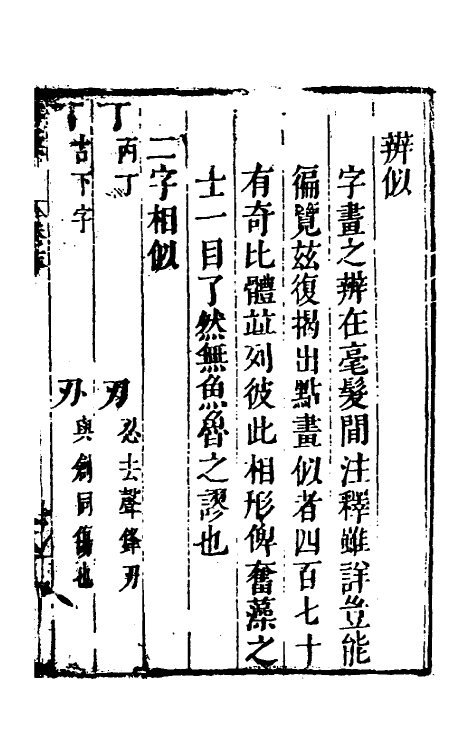 辨似
字畫之辨在毫髮間注釋雖詳豈能
徧覽茲復揭出點畫似者四百七十
有奇比體並列彼此相形俾奮藻之
士一目了然無魚魯之謬也
二字相似
丁丙丁 刃忍去聲鋒刃
丅古下字 刅與創同傷也